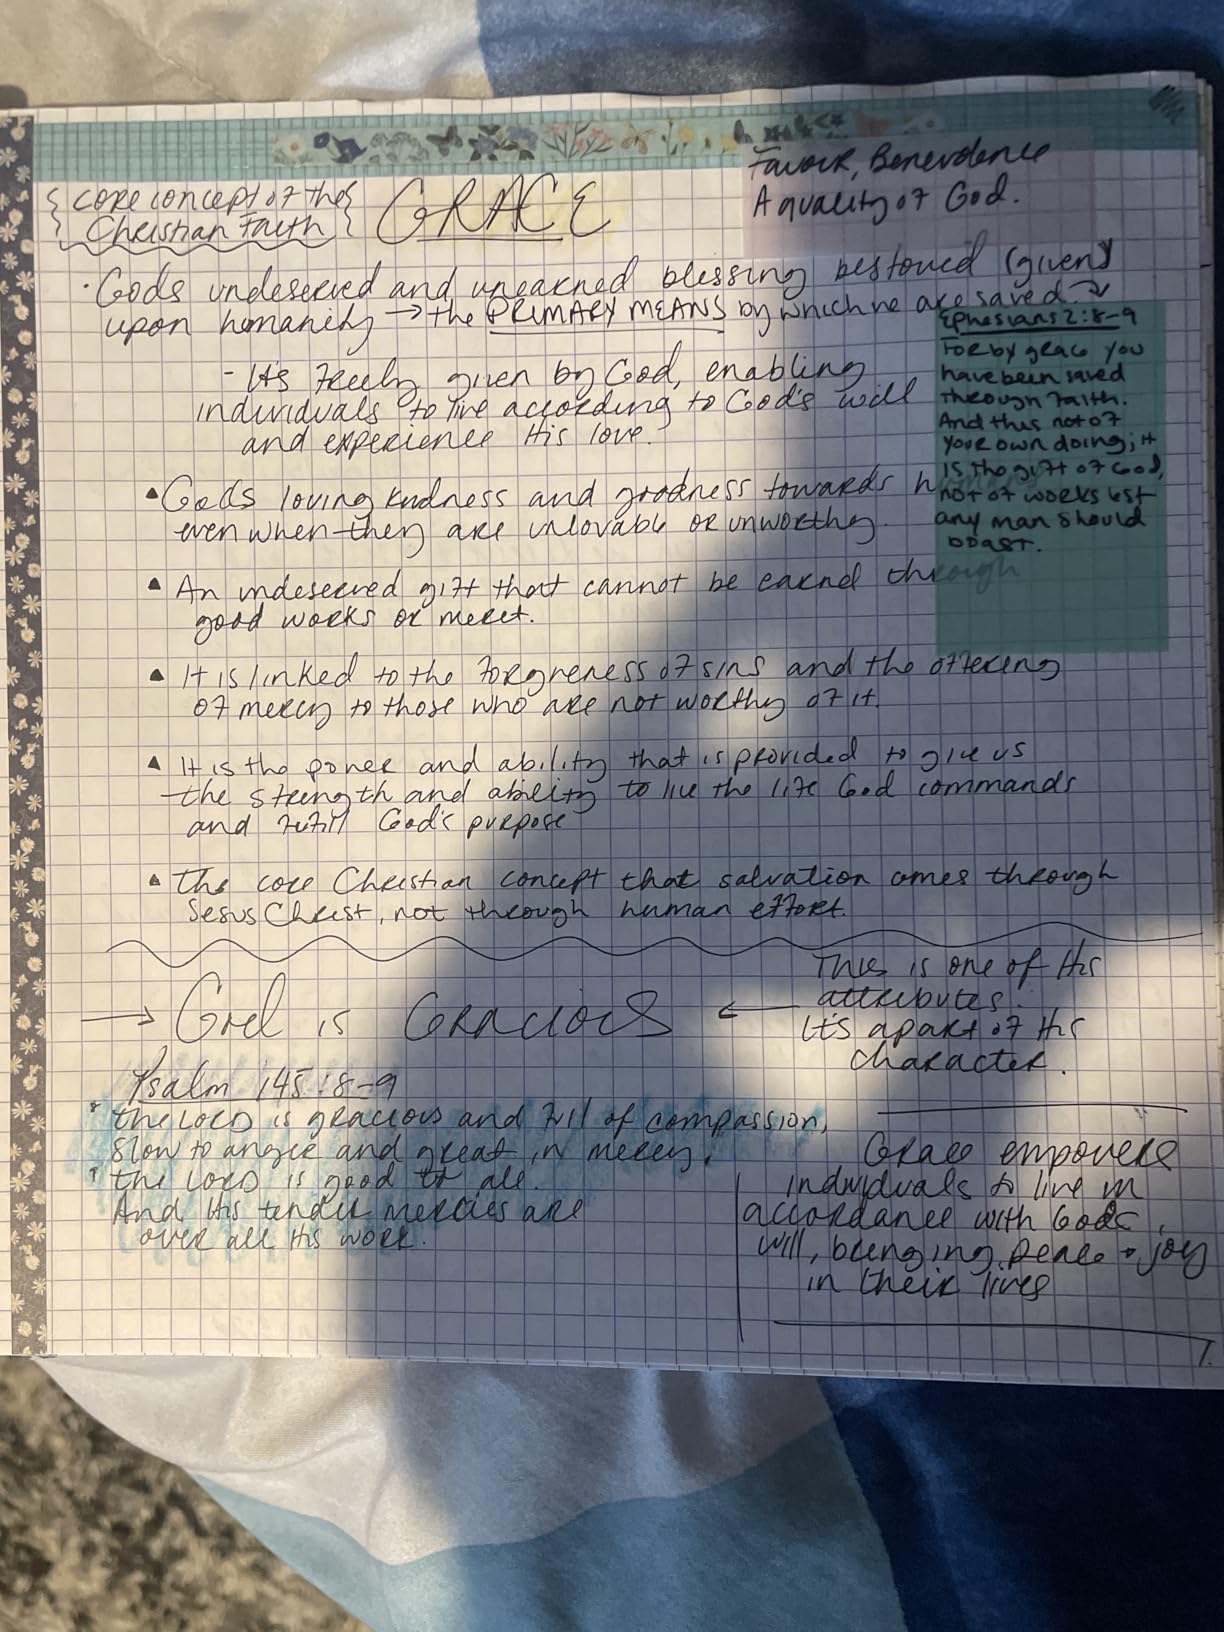 { Core concept of the }
{ Christian Faith }
GRACE
Favour, Benevolence
A quality of God.
· Gods undeserved and unearned blessing bestowed (given)
upon humanity → the PRIMARY MEANS by which we are saved. ↴
Ephesians 2:8-9
For by grace you
have been saved
through Faith.
And this not of
your own doing; it
is the gift of God,
not of works lest
any man should
boast.
- It's freely given by God, enabling
individuals to live according to God's will
and experience His love.
▲ God's loving kindness and goodness towards
even when they are unlovable or unworthy.
▲ An undeserved gift that cannot be earned through
good works or merit.
▲ It is linked to the forgiveness of sins and the offering
of mercy to those who are not worthy of it.
▲ It is the power and ability that is provided to give us
the strength and ability to live the life God commands
and fulfill God's purpose
▲ The core Christian concept that salvation comes through
Jesus Christ, not through human effort.
→ God is Gracious ←
This is one of His
attributes.
It's apart of His
character.
Psalm 145:8-9
8 The LORD is gracious and full of compassion,
Slow to anger and great in mercy.
9 The LORD is good to all.
And His tender mercies are
over all His work.
Grace empowers
individuals to live in
accordance with Gods
will, bringing peace + joy
in their lives
1.